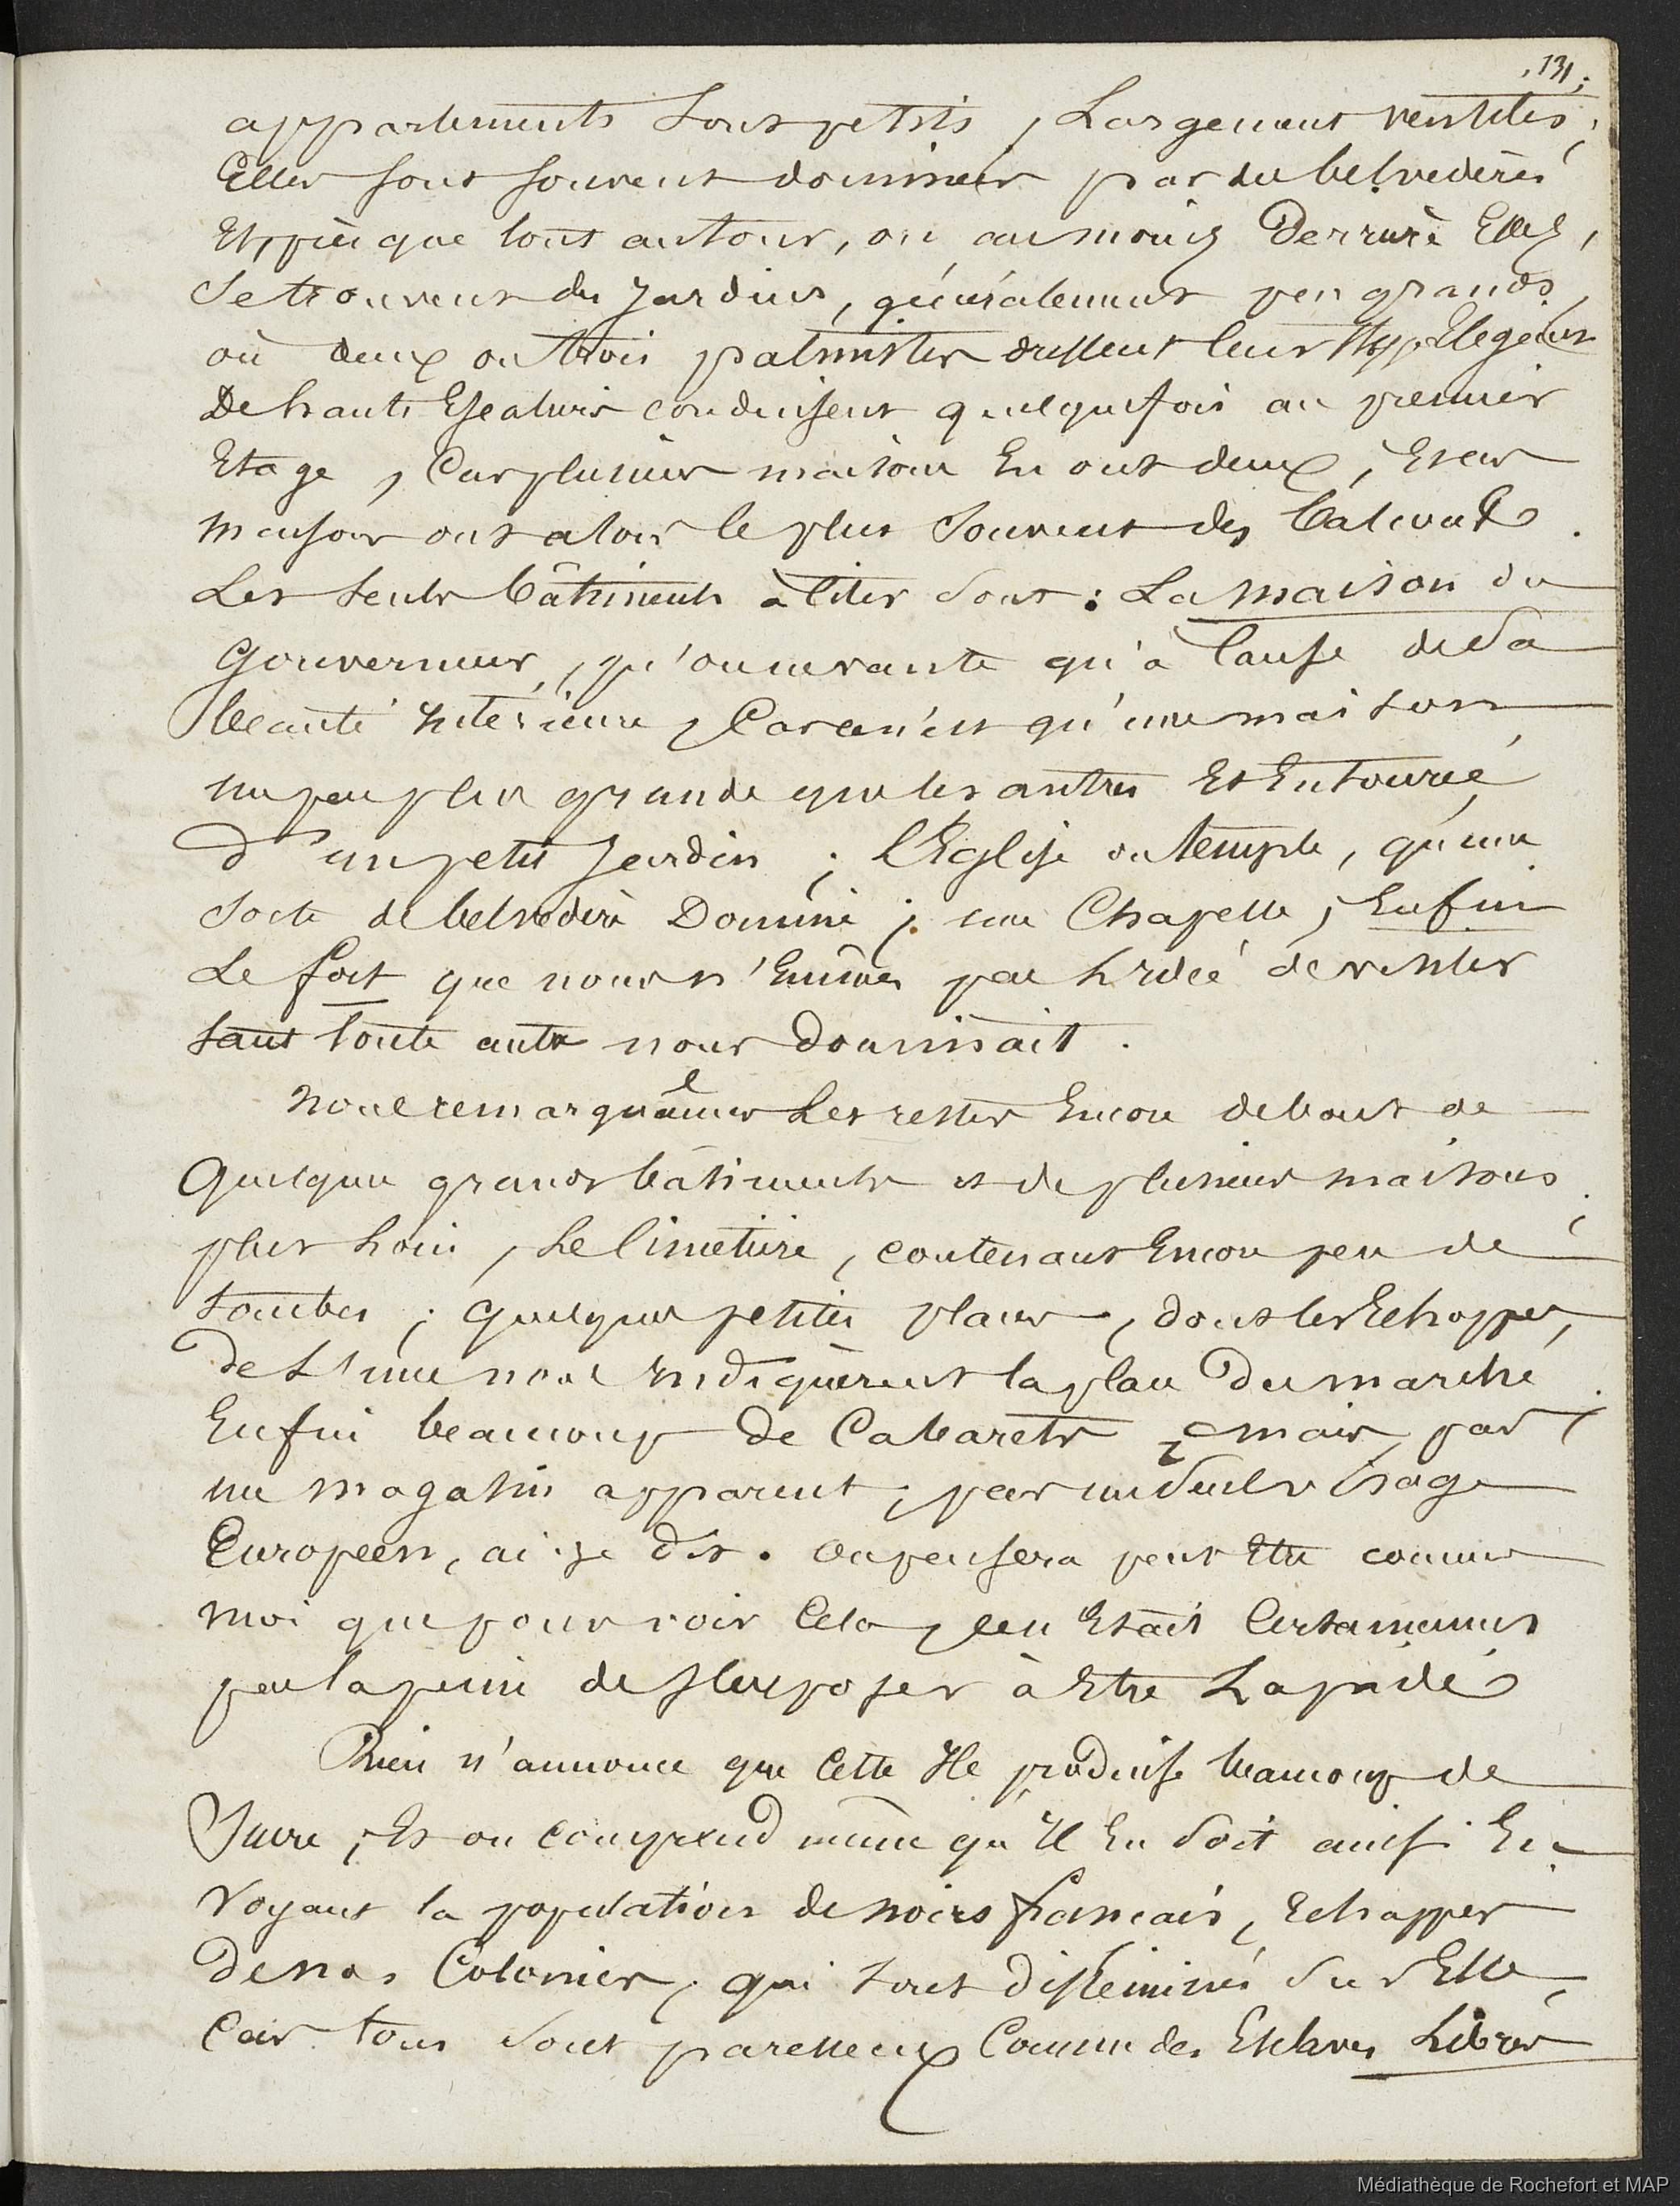 131.
appartements sont petits, Largement ventilés;
Elles sont souvent dominées par des belvédères
Et, presque tout autour, ou aumoins Derrière Elles,
Se trouvent des Jardins, généralement peu grands,
où deux ou trois palmistes dressent leur Elegens
De hauts Escaliers conduisent quelquefois au premier
Etage, Car plusieurs maisons En ont deux, Et ces
maisons ont alors le plus Souvent des balcons.
Les seuls bâtiments à Citer sont: La maison du
Gouverneur, qu'on ne vante qu'à Cause de sa
beauté Intérieure, Car ce n'est qu'une maison
un peu plus grande que les autres Et Entourée
d'un petit Jardin; l'Eglise ou temple, qu'une
sorte de belvédère Domine; une Chapelle; Enfin
Le fort que nous n'eumes pas l'Idée de visiter
sans toute autre nous Dominait.
Nous remarquâmes Les restes Encore debout de
Quelques grands bâtiments et de plusieurs maisons;
plus Loin, Le Cimetière, contenant Encore peu de
tombes; Quelques petites places, dont les Echoppes,
De L'une nous Indiquèrent la place Du marché.
Enfin beaucoup de Cabarets, mais pas
un magasin apparent, pas un seul visage
Européen, ai-je dit. on pensera peut Etre comme
moi que pour voir Cela, ce n'Etait Certainement
pas la peine de s'Exposer à Etre Lapidés
Rien n'annonce que Cette Ile produise beaucoup de
Sucre, Et on comprend même qu'Il En soit ainsi En
Voyant la population de noirs français, Echappés
De nos Colonies, qui sont disséminés sur Elle,
Car tous sont paresseux Comme des Esclaves Libres
Médiathèque de Rochefort et MAP